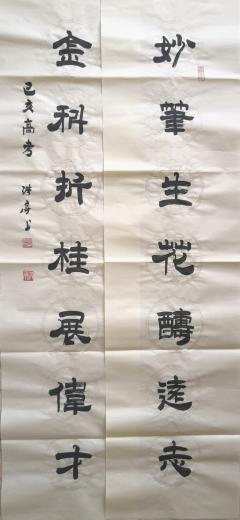 妙筆生花醻遠志
金科折桂展偉才
己亥高考